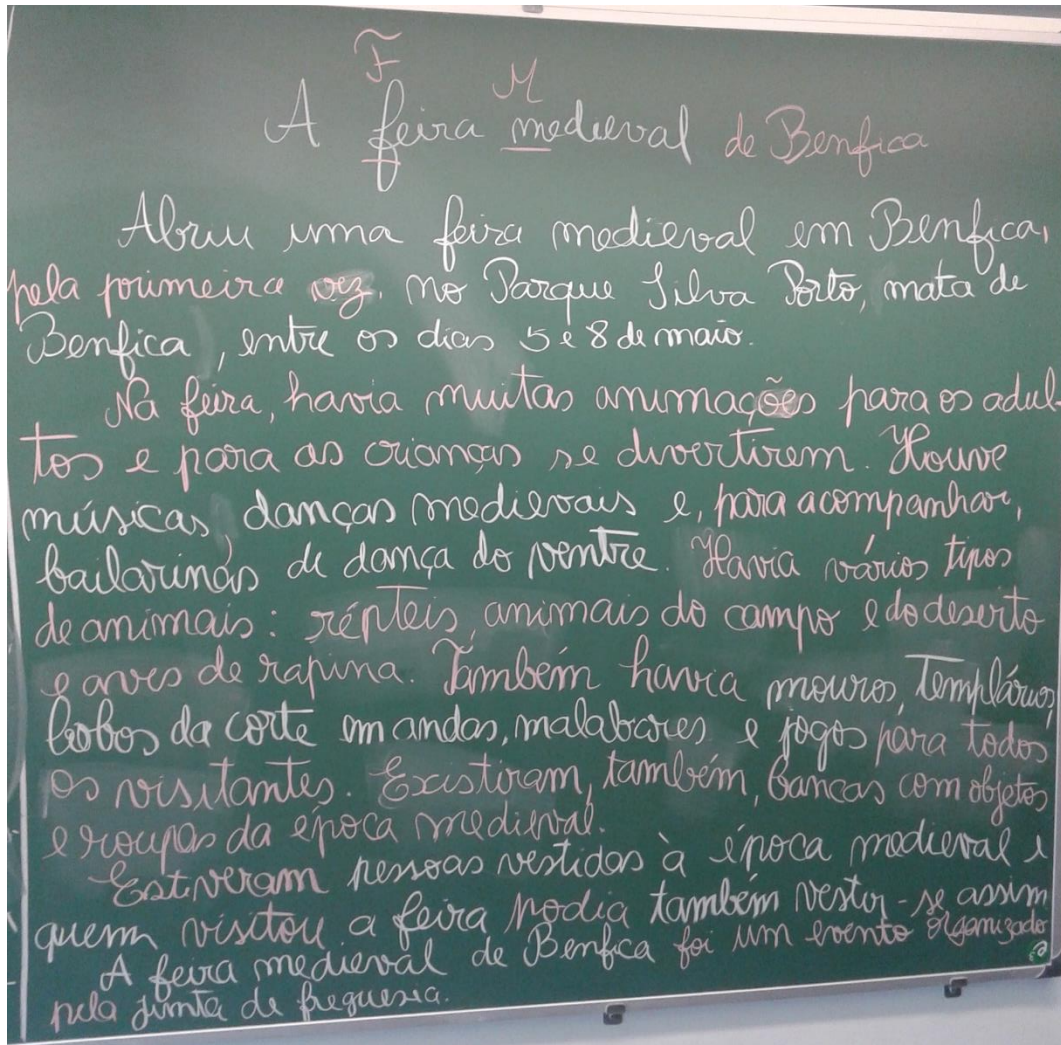 F M
A feira medieval de Benfica
Abriu uma feira medieval em Benfica,
pela primeira vez, no Parque Silva Porto, mata de
Benfica, entre os dias 5 e 8 de maio.
Na feira, havia muitas animações para os adul-
tos e para as crianças se divertirem. Houve
músicas, danças medievais e, para acompanhar,
bailarinas de dança do ventre. Havia vários tipos
de animais: répteis, animais do campo e do deserto
e aves de rapina. Também havia mouros, Templários,
bobos da corte em andas, malabares e jogos para todos
os visitantes. Existiram, também, bancas com objetos
e roupas da época medieval.
Estiveram pessoas vestidas à época medieval e
quem visitou a feira podia também vestir-se assim
A feira medieval de Benfica foi um evento organizado
pela junta de freguesia.